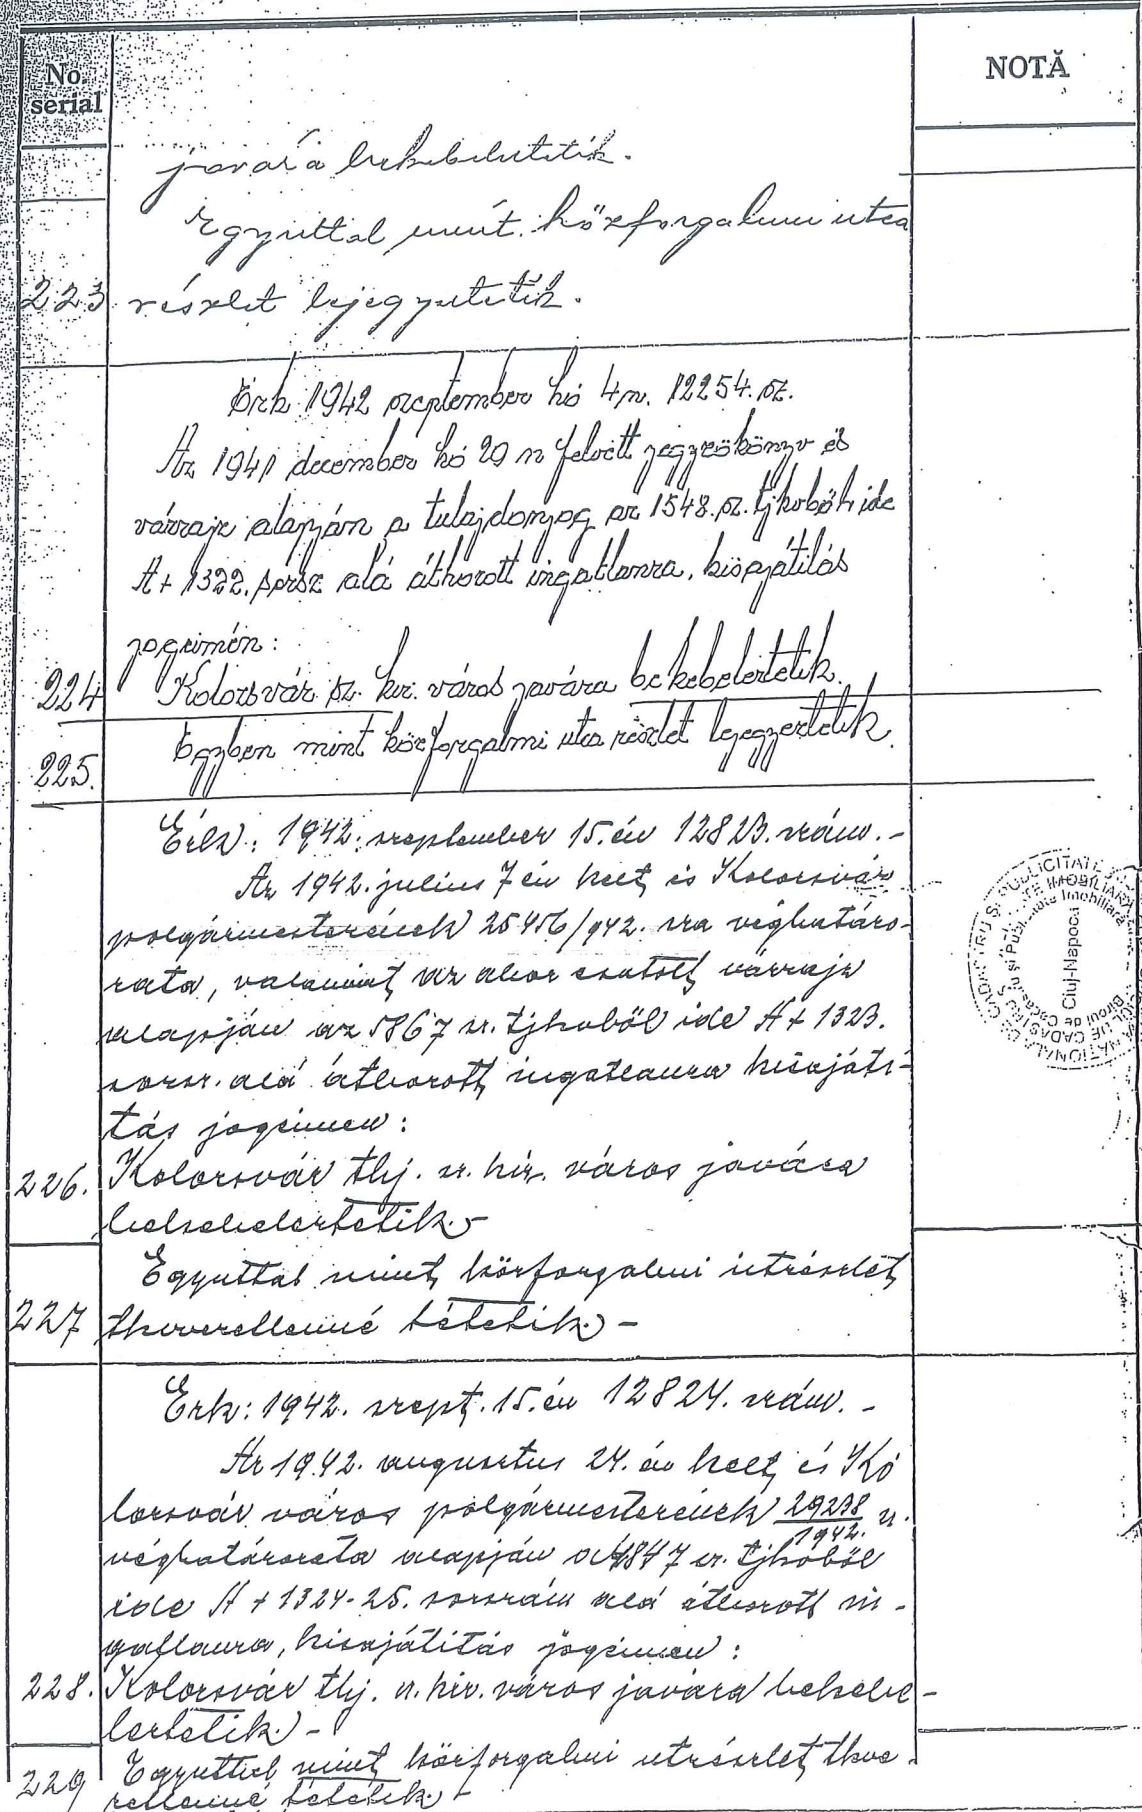 No.
serial
NOTĂ
javára bekebeleztetik.
Egyuttal mint közforgalmu utca
223 részlet lejegyeztetik.
Érk 1942 szeptember hó 4 n. 12254. sz.
Az 1941 december hó 29 n felvett jegyzökönyv és
vázrajz alapján a tulajdonjog az 1548. sz. tjkvből ide
A + 1322. sorsz alá áthozott ingatlanra, kisajátitás
jogcimén:
224 Kolozsvár sz. kir. város javára bekebeleztetik.
225. Egyben mint közforgalmi utca részlet lejegyeztetik.
Érk: 1942. szeptember 15. én 12823. szám. -
Az 1942. julius 7 én kelt és Kolozsvár
polgármesterének 25456/942. sza véghatáro-
zata, valamint az ahoz csatolt vázrajz
alapján az 5867 sz. tjkvből ide A + 1323.
sorsz. alá áthozott ingatlanra kisajáti-
tás jogcimen:
226. Kolozsvár thj. sz. kir. város javára
bekebeleztetik. -
Egyuttal mint közforgalmi utrészlet
227 tkvezellenné tétetik. -
Érk: 1942. szept. 15. én 12824. szám. -
Az 1942. augusztus 24. én kelt és Ko
lozsvár város polgármesterének 29238/1942. sz.
véghatározata alapján a 4847 sz. tjkvből
ide A + 1324-25. sorszám alá áthozott in-
gatlanra, kisajátitás jogcimen:
228. Kolozsvár thj. sz. kir. város javára bekebe-
leztetik. -
229 Egyuttal mint közforgalmi utrészlet tkve-
zellenné tétetik. -
Cluj-Napoca